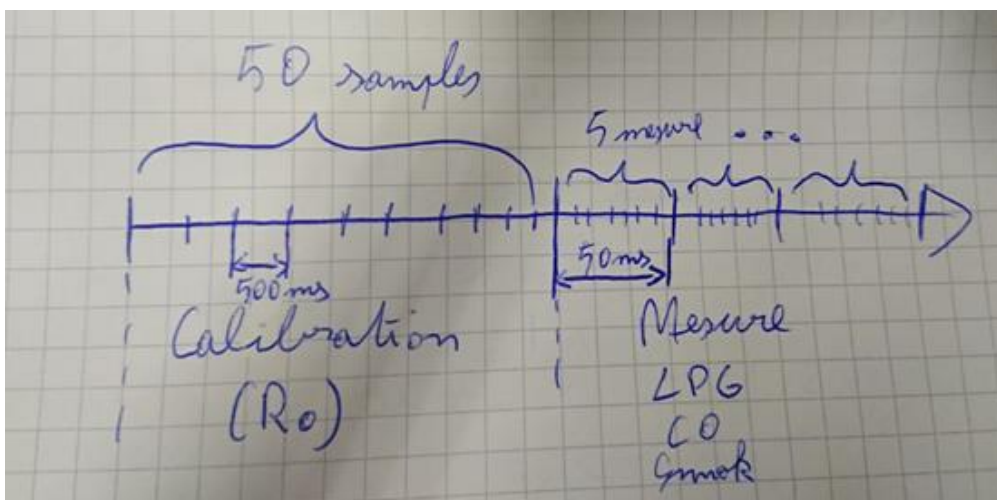 50 samples
5 mesure ...
500 ms
50 ms
Calibration
(Ro)
Mesure
LPG
CO
Smok